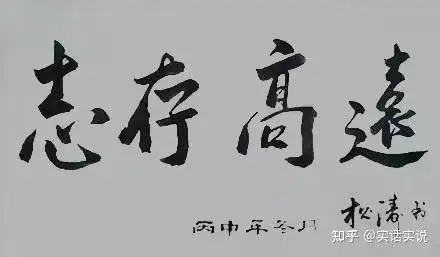 志存高遠
丙申年冬月 松濤书
知乎 @实话实说